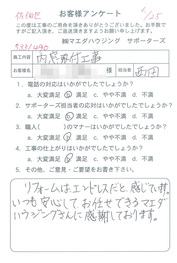 お客様アンケート
この度は工事のご用命を頂きありがとうございました。お手数で
すがご記入頂き、ご返送頂きますようお願い申し上げます。
㈱マエダハウジング サポーターズ
施工内容 内窓取付工事
お名前 様 担当者 西田
1. 電話の対応はいかがでしたでしょうか?
a.大変満足 b.満足 c.やや不満 d.不満
2. サポーターズ担当者の対応はいかがでしたでしょうか?
a.大変満足 b.満足 c.やや不満 d.不満
3. 職人( )のマナーはいかがでしたでしょうか?
a.大変満足 b.満足 c.やや不満 d.不満
4. 工事の仕上りはいかがでしたでしょうか?
a.大変満足 b.満足 c.やや不満 d.不満
その他、ご意見・ご要望をお書き下さい。
リフォームはエンドレスだと感じています。
いつも安心してお任せできるマエダ
ハウジングさんに感謝しております。